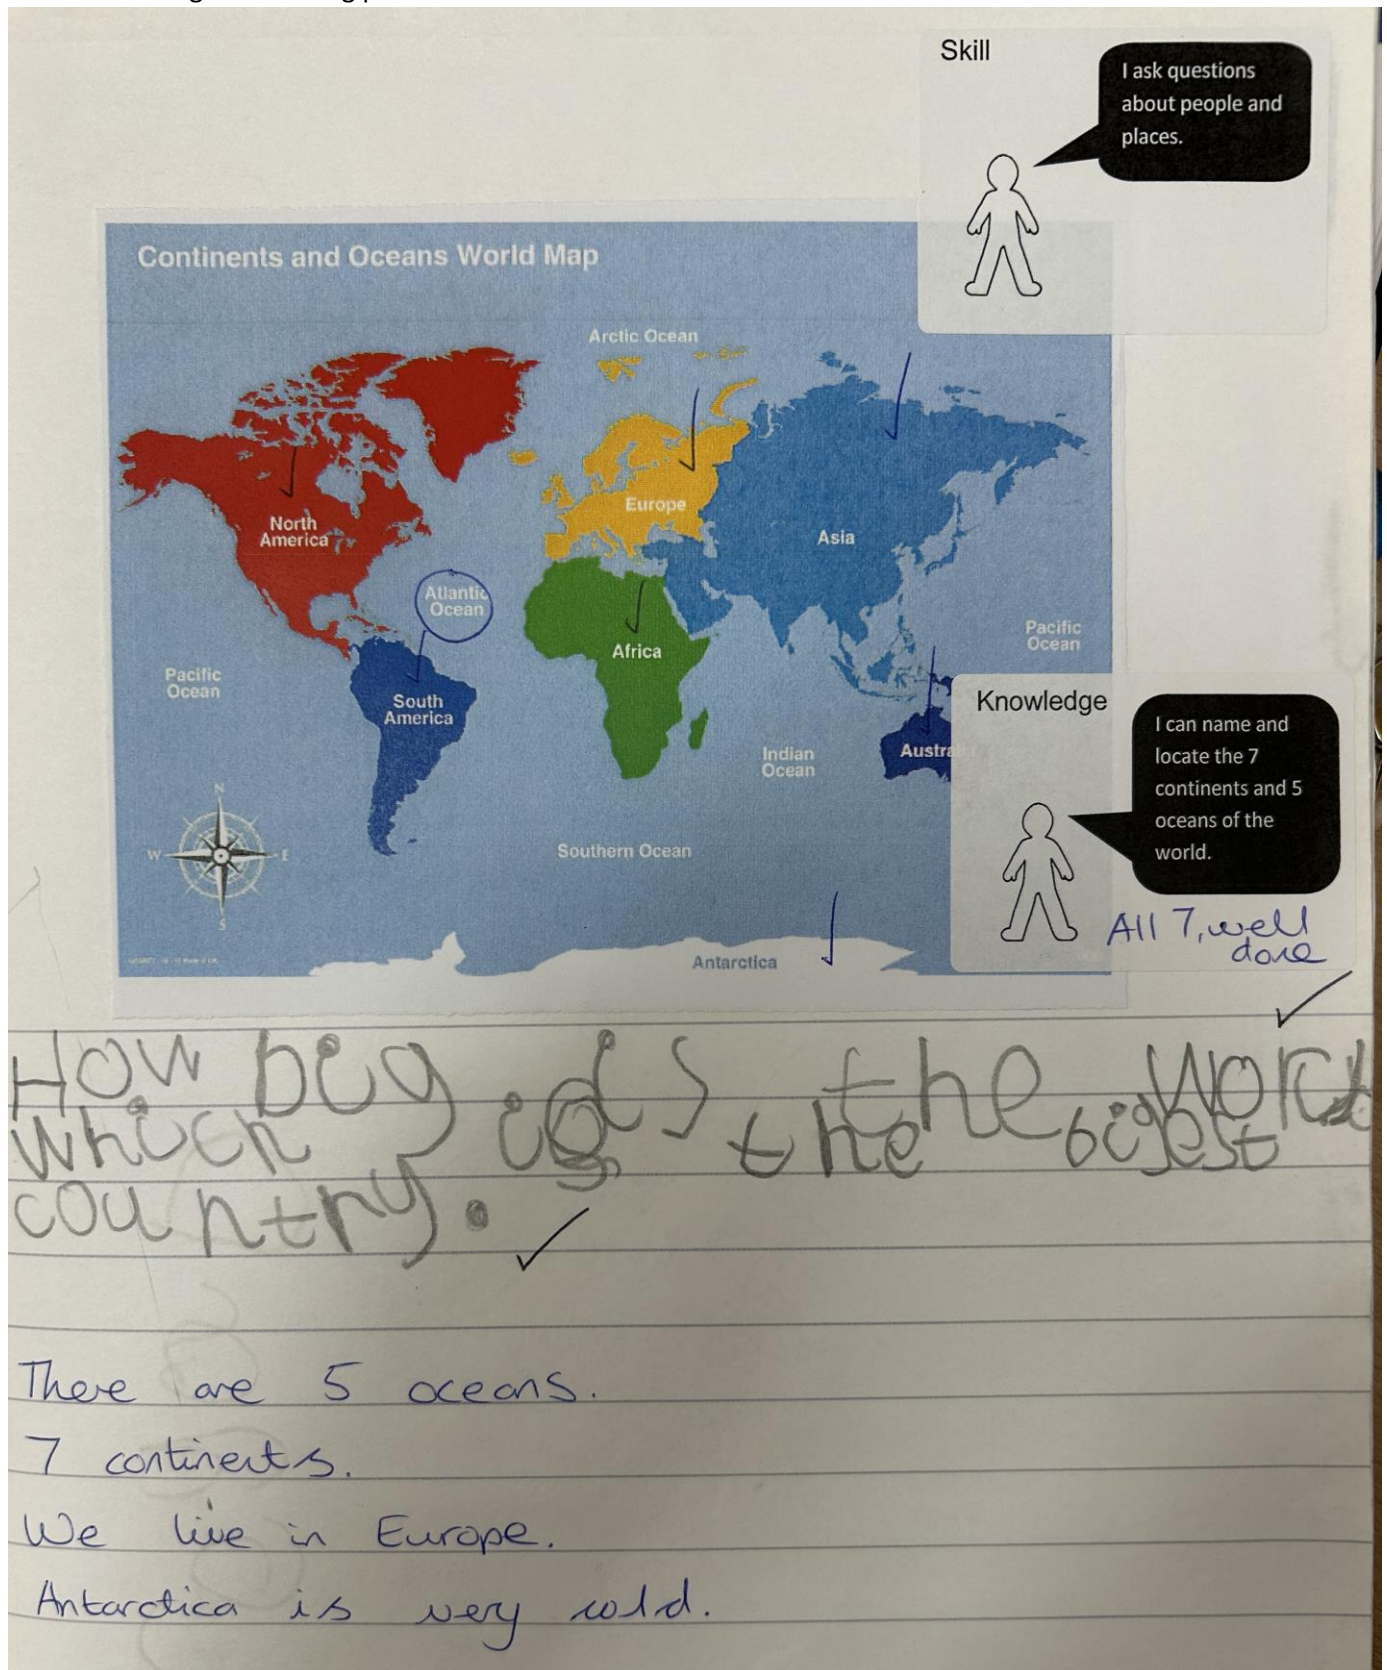 Skill
I ask questions
about people and
places.
Continents and Oceans World Map
Arctic Ocean
North
America
Europe
Asia
Atlantic
Ocean
Africa
Pacific
Ocean
Pacific
Ocean
South
America
Indian
Ocean
Austra
Knowledge
I can name and
locate the 7
continents and 5
oceans of the
world.
N
W
E
S
Southern Ocean
Antarctica
All 7, well
done
How big is the
which is the bigest
country.
There are 5 oceans.
7 continents.
We live in Europe.
Antarctica is very cold.